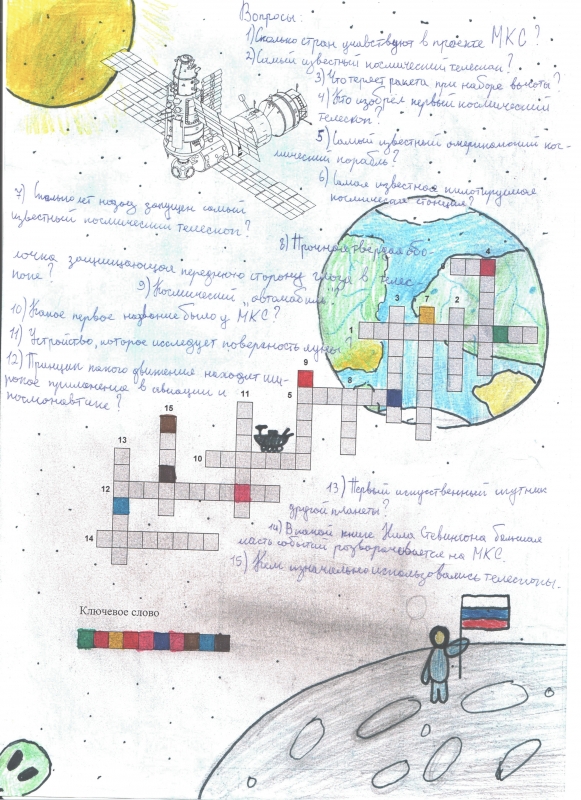 Вопросы:
1) Сколько стран учавствуют в проекте МКС?
2) Самый известный космический телескоп?
3) Что теряет ракета при наборе высоты?
4) Кто изобрёл первый космический
телескоп?
5) Самый известный американский кос-
мический корабль?
6) Самая известная пилотируемая
космическая станция?
7) Сколько лет назад запущен самый
известный космический телескоп?
8) Прочная твёрдая обо-
лочка защищающая переднюю сторону глаза в телес-
копе?
9) Космический "автомобиль"?
10) Какое первое название было у МКС?
11) Устройство, которое исследует поверхность луны?
12) Принцип какого движения находит ши-
рокое применение в авиации и
космонавтике?
4
3 7 2
1
9
8
5
15 11
13
10
12
14
13) Первый искуственный спутник
другой планеты?
14) В какой книге Нила Стивенсона большая
часть событий разворачивается на МКС.
15) Кем изначально использовались телескопы.
Ключевое слово